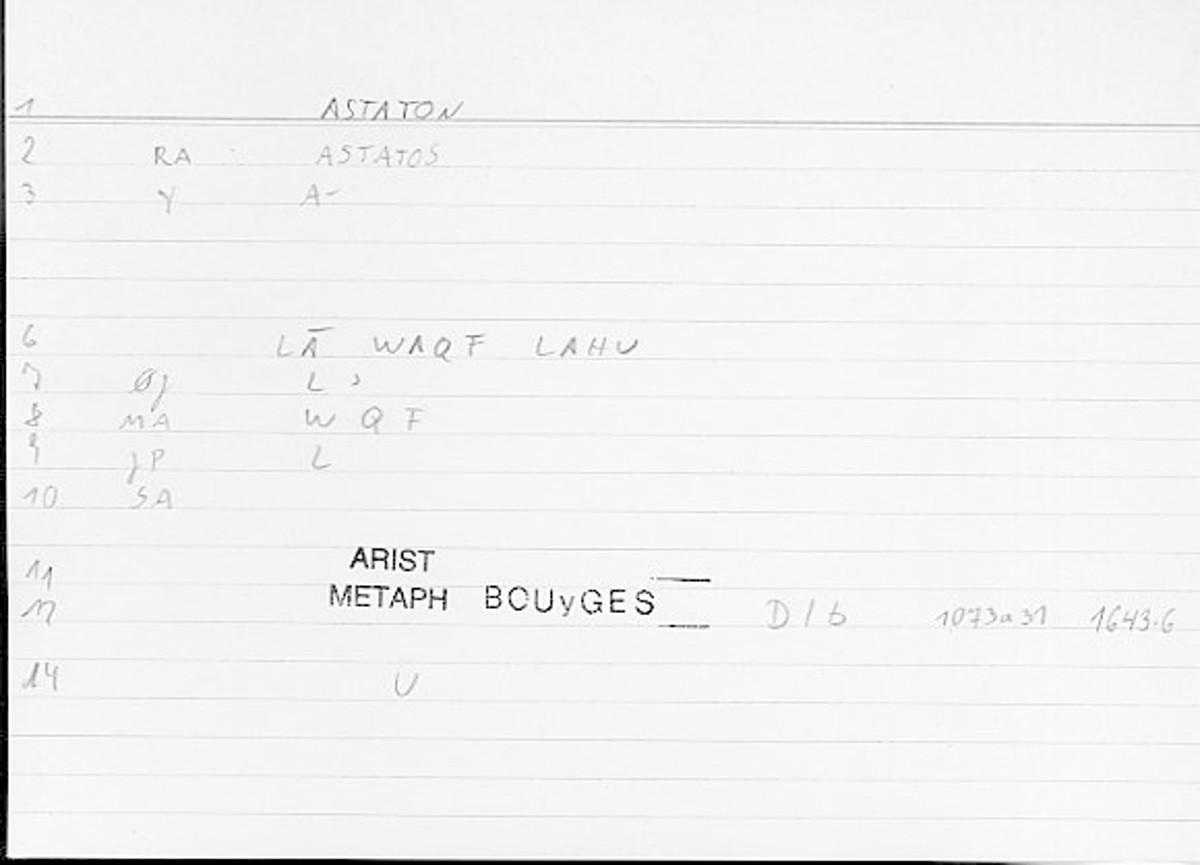 1 ASTATON
2 RA ASTATOS
3 Y A-
6 LĀ WAQF LAHU
7 Øj L ʾ
8 MA W Q F
9 jP L
10 SA
11 ARIST
12 METAPH BOUyGES D/b 1073a31 1643.6
14 U